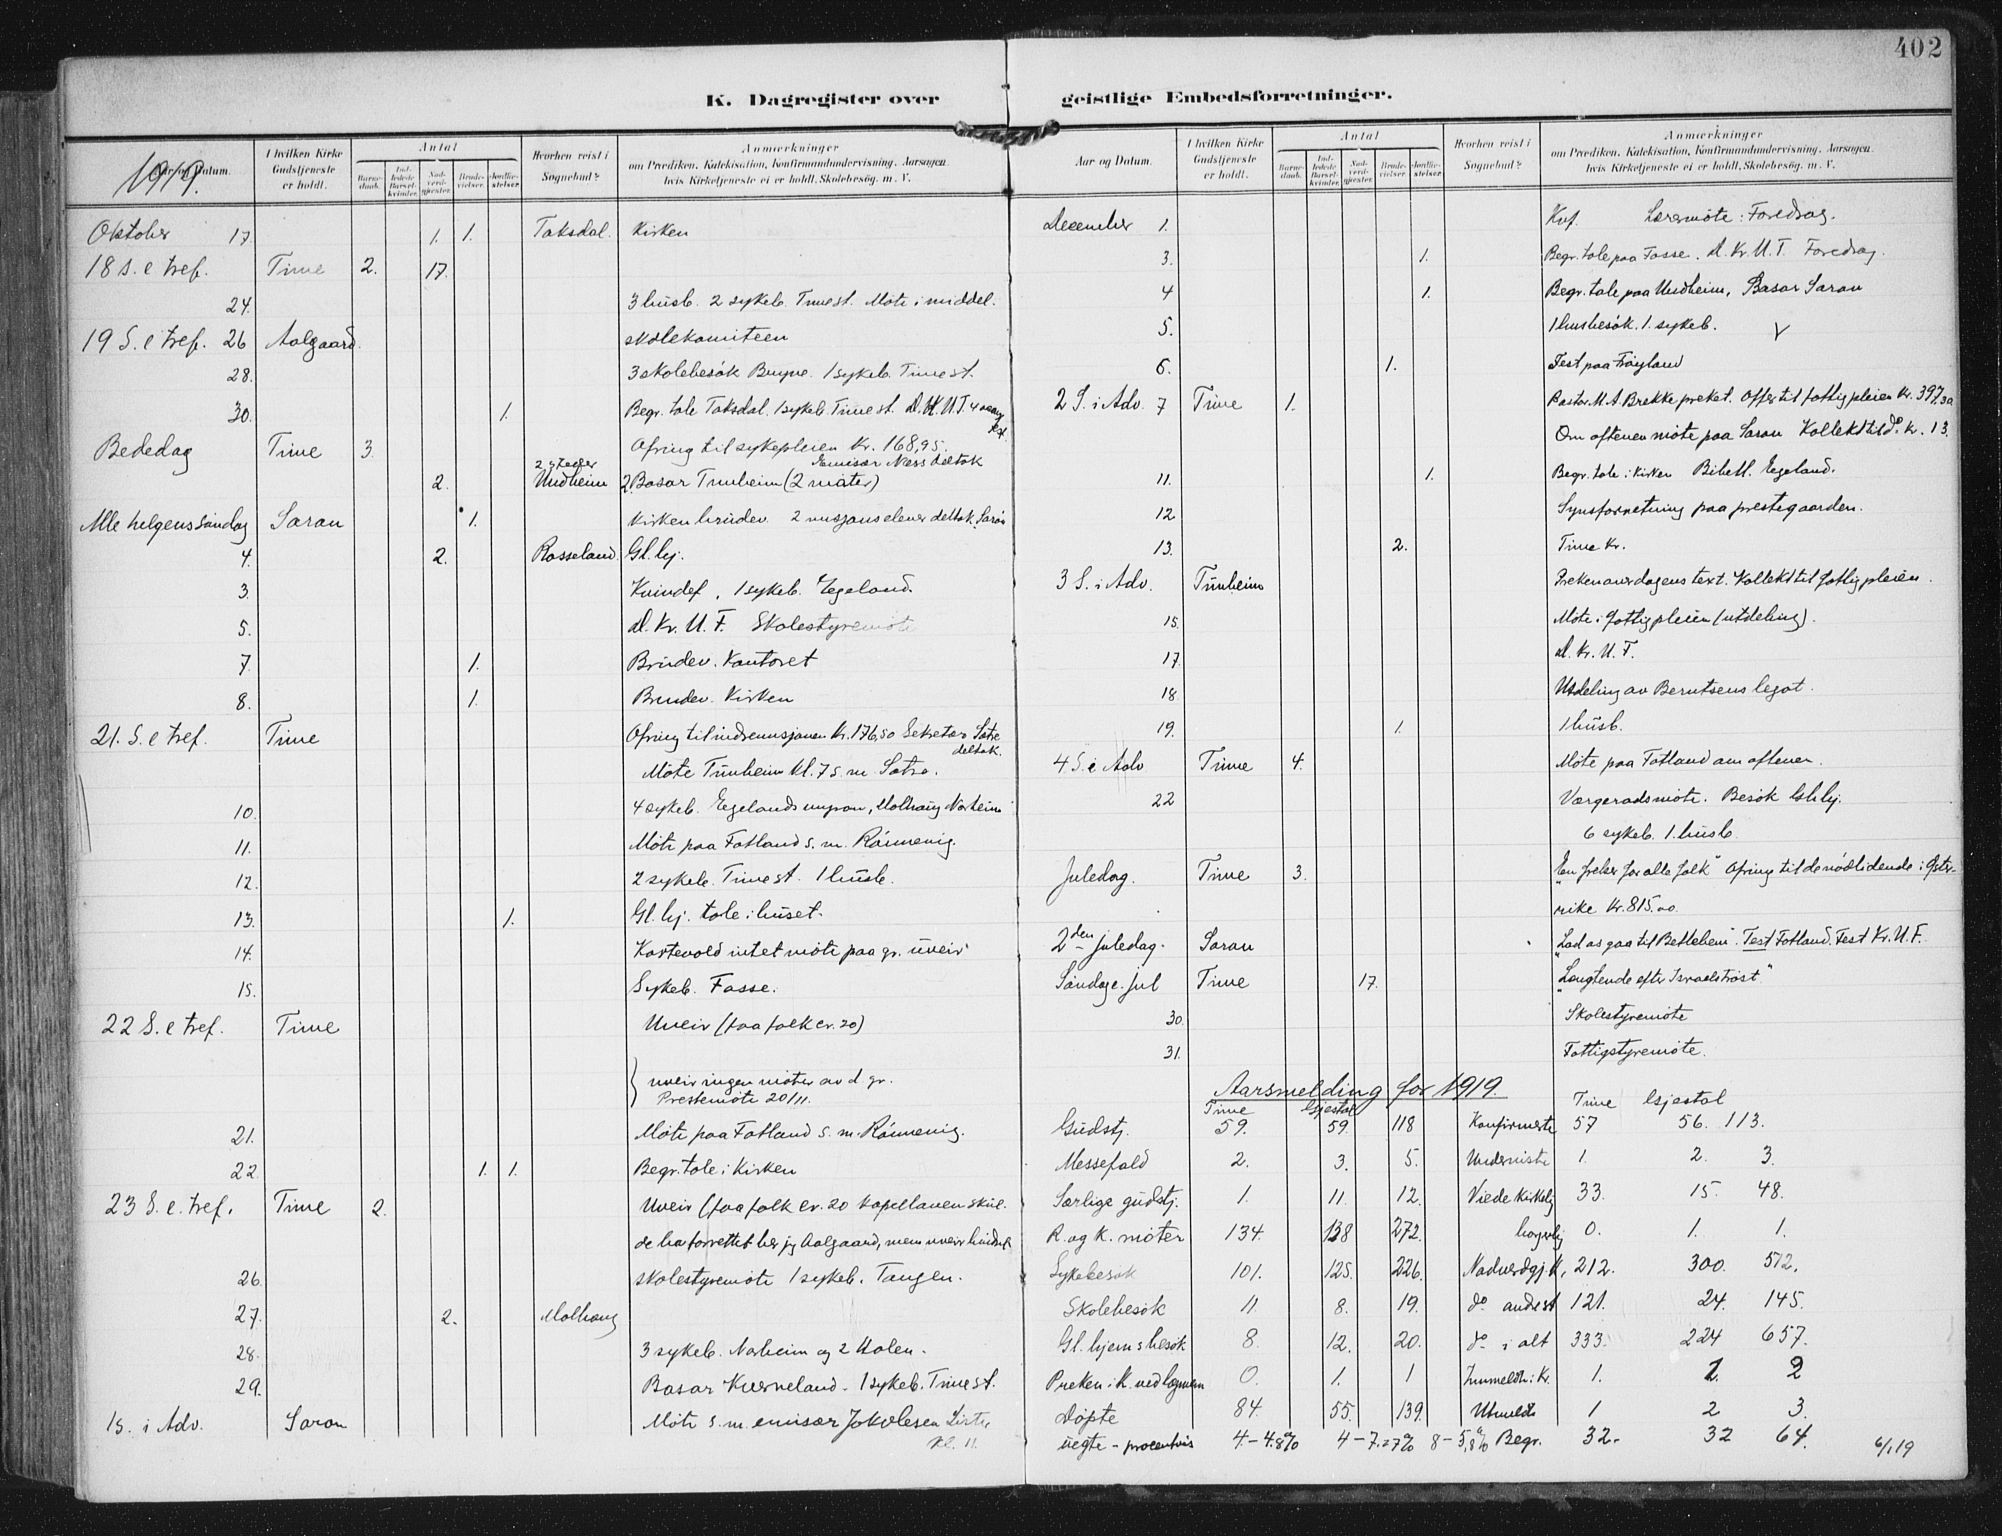 402
K. Dagregister over geistlige Embedsforretninger.
1919. Aar og Datum.
I hvilken Kirke Gudstjeneste er holdt.
Antal
Barnedaab.
Indledede Barselkvinder.
Nadverdgjester.
Brudevielser.
Jordfæstelser.
Hvorhen reist i Sognebud?
Anmærkninger
om Prædiken, Katekisation, Konfirmandundervisning, Aarsagen
hvis Kirketjeneste ei er holdt, Skolebesøg. m. V.
Oktober 17. 1. 1. Taksdal. Kirken
18 S. e tref. Time 2. 17.
24. 3 husb. 2 sykeb. Time st. Möte i middel.
19 S. e tref. 26 Aalgaard. skolekomiteen
28. 3 skolebesök Bryne. 1 sykeb. Time st.
30. 1. Begr. tale Taksdal. 1 sykeb. Time st.
Bededag Time 3. Ofring til sykepleien Kr. 168,95.
2 steder Emisær Næss deltok
2. Undheim 2 Basar Tunheim (2 möter)
Alle helgens söndag Saron 1. Kirken brudev. 2 misjonselever deltok Saron
4. 2. Rosseland. Gl. hj.
3. Kvindef. 1 sykeb. Egeland.
5. D. Kr. U. F. Skolestyremöte
7. 1. Brudev. Kontoret
8. 1. Brudev. Kirken
21. S. e tref. Time Ofring til indremisjonen Kr. 176,50 Sekretær Sætre
deltok.
Möte Tunheim kl. 7 s. m. Sætre.
10. 4 sykeb. Egelandsmyran, Molhaug Norheim
11. Möte paa Fotland s. m. Rönnevig.
12. 2 sykeb. Time st. 1 husb.
13. 1. Gl. hj. tale i huset.
14. Kartevold intet möte paa gr. uveir
15. Sykeb. Fosse.
22 S. e tref. Time Uveir (faa folk cr. 20)
uveir ingen möter av d gr.
Prestemöte 20/11.
21. Möte paa Fotland s. m. Rönnevig.
22. 1. 1. Begr. tale i Kirken
23 S. e. tref. Time 2. Uveir (faa folk cr. 20 kapellanen skul-
de ha forrettet her jeg Aalgaard, men uveir hindret
26. skolestyremöte 1 sykeb. Tangen.
27. 2. Molhaug
28. 3 sykeb. Norheim og 2 Holen.
29. Basar Kverneland. 1 sykeb. Time st.
1 S. i Adv. Saron Möte s. m. emisær Jakobsen Lister
Kl. 11.
Aar og Datum.
I hvilken Kirke Gudstjeneste er holdt.
Antal
Barnedaab.
Indledede Barselkvinder.
Nadverdgjester.
Brudevielser.
Jordfæstelser.
Hvorhen reist i Sognebud?
Anmærkninger
om Prædiken, Katekisation, Konfirmandundervisning, Aarsagen
hvis Kirketjeneste ei er holdt, Skolebesøg. m. V.
December 1. Kvf. Læremöte: Foredrag.
3. 1. Begr. tale paa Fosse. D. Kr. U. F. Foredrag.
4 1. Begr. tale paa Undheim, Basar Saron
5. 1 husbesök. 1. sykeb.
6. 1. Fest paa Fröyland
2 S. i Adv. 7 Time 1. Pastor M. A. Brekke preket. Offer til fattigpleien Kr. 397,30
Om aftenen möte paa Saron Kollekt til do. Kr. 13.
11. 1. Begr. tale i Kirken Bibell. Egeland.
12 Synsforretning paa prestegaarden.
13. 2. Time Kr.
3 S. i Adv. Tunheim Preken over dagens text. Kollekt til fattigpleien.
15. Möte i fattigpleien (utdeling).
17. D. Kr. U. F.
18. Utdeling av Berntsens legat.
19. 1. 1 husb.
4 S. i Adv Time 4. Möte paa Fotland om aftenen.
22 Værgeradsmöte. Besök Gl. hj.
6 sykeb. 1. husb.
Juledag. Time 3. "En frelser for alle folk" Ofring til de nödlidende i Öster-
rike Kr. 815,00
2den juledag. Saron "Lad os gaa til Betlehem". Fest Fotland. Fest Kr. U. F.
Söndag e. jul Time 17. "Længtende efter Israels tröst"
30. Skolestyremöte
31. Fattigstyremöte.
Aarsmelding for 1919.
Time Gjestal Time Gjestal
Gudstj. 59. 59 118 Konfirmerte 57 56. 113.
Messefald 2. 3. 5. Underviste 1. 2. 3.
Særlige gudstj. 1. 11. 12. Viede Kirkelig 33. 15. 48.
R. og K. möter 134. 138 272. borgerlig 0. 1. 1.
Sykebesök 101. 125. 226. Nadverdgj. K. 212. 300. 512.
Skolebesök 11. 8. 19. do andest 121. 24. 145.
Gl. hjemsbesök 8. 12. 20. do i alt 333. 224 657.
Preken i K. ved lægmen 0. 1. 1 Innmeldte i Kr. 1. 1. 2
Döpte 84. 55. 139. Utmeldte 1 2 3.
uegte - procentvis 4 - 4.8% 4 - 7.27% 8 - 5,8% Begr. 32. 32 64.
6/1 19